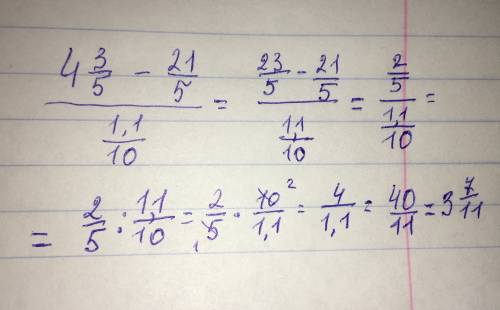 (4 3/5 − 21/5) / (1,1/10) = (23/5 − 21/5) / (1,1/10) = (2/5) / (1,1/10) =
= 2/5 : 1,1/10 = 2/5 · 10/1,1 = 4/1,1 = 40/11 = 3 7/11